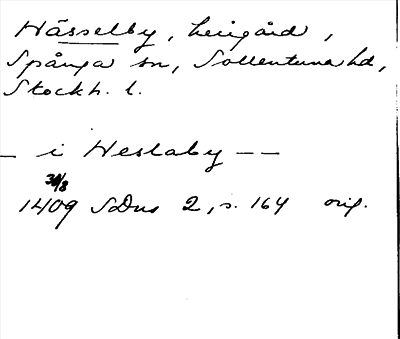 Hässelby, herrgård,
Spånga sn, Sollentuna hd,
Stockh. l.
— i Heslaby — —
30/8
1409 SDns 2, s. 164 orig.